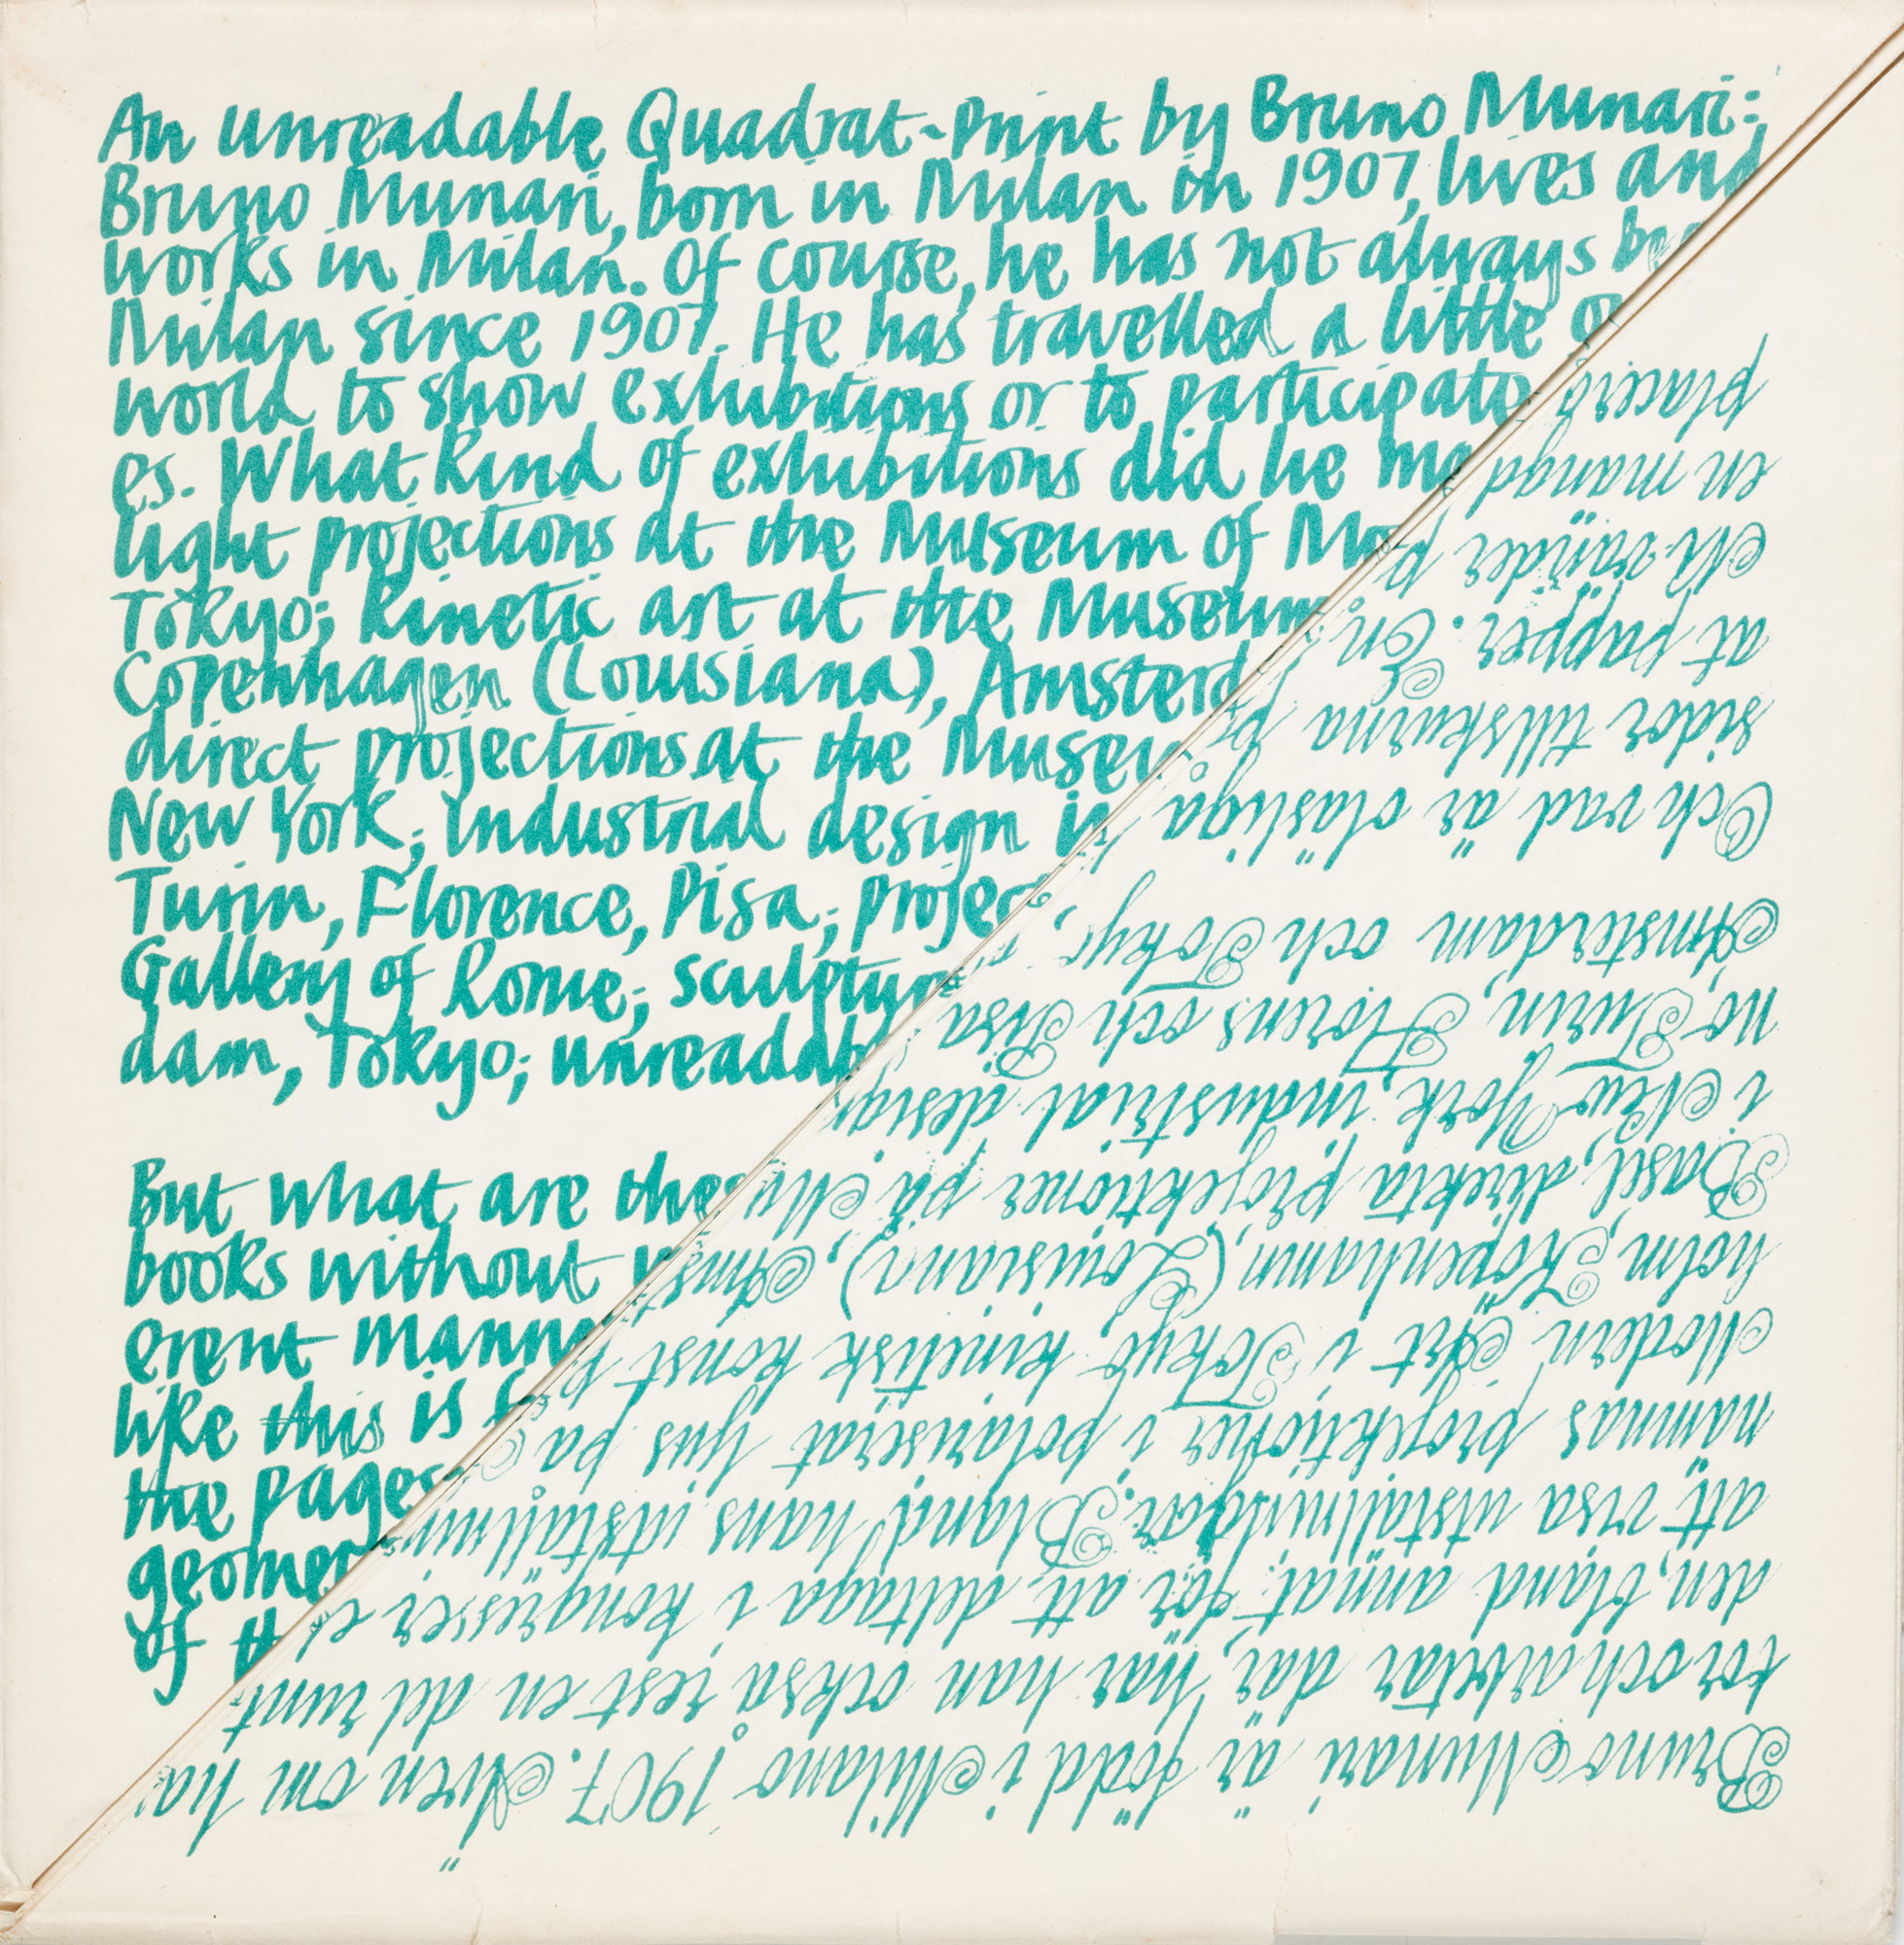 An unreadable Quadrat-Print by Bruno Munari:
Bruno Munari, born in Milan in 1907, lives and
works in Milan. Of course, he has not always be
Milan since 1907. He has travelled a little o
world to show exhibitions or to participate
es. What kind of exhibitions did he ma
light projections at the Museum of Mo
Tokyo; kinetic art at the Museum
Copenhagen (Louisiana), Amsterd
direct projections at the Museu
New York; industrial design in
Turin, Florence, Pisa; projec
Gallery of Rome; sculptur
dam, Tokyo; unreadab
But what are thes
books without w
erent manne
like this is f
the pages
geomer
of th
Bruno Munari är född i Milano 1907. Även om ha
tor och arbetar där, har han också rest en del runt
den, bland annat för att deltaga i kongresser el
att visa utställningar. Bland hans utställnin
nämnas projektioner i polariserat ljus på
Modern Art i Tokyo, kinetisk konst p
holm, Köpenhamn, (Louisiana), Amst
Basel, direkta projektioner på Mu
i New York, industrial design
no, Turin, Florens och Pisa
Amsterdam och Tokyo,
Och vad är oläsliga
sidor tillskurna p
at papper. En
Ni vänder p
en mängd
placera